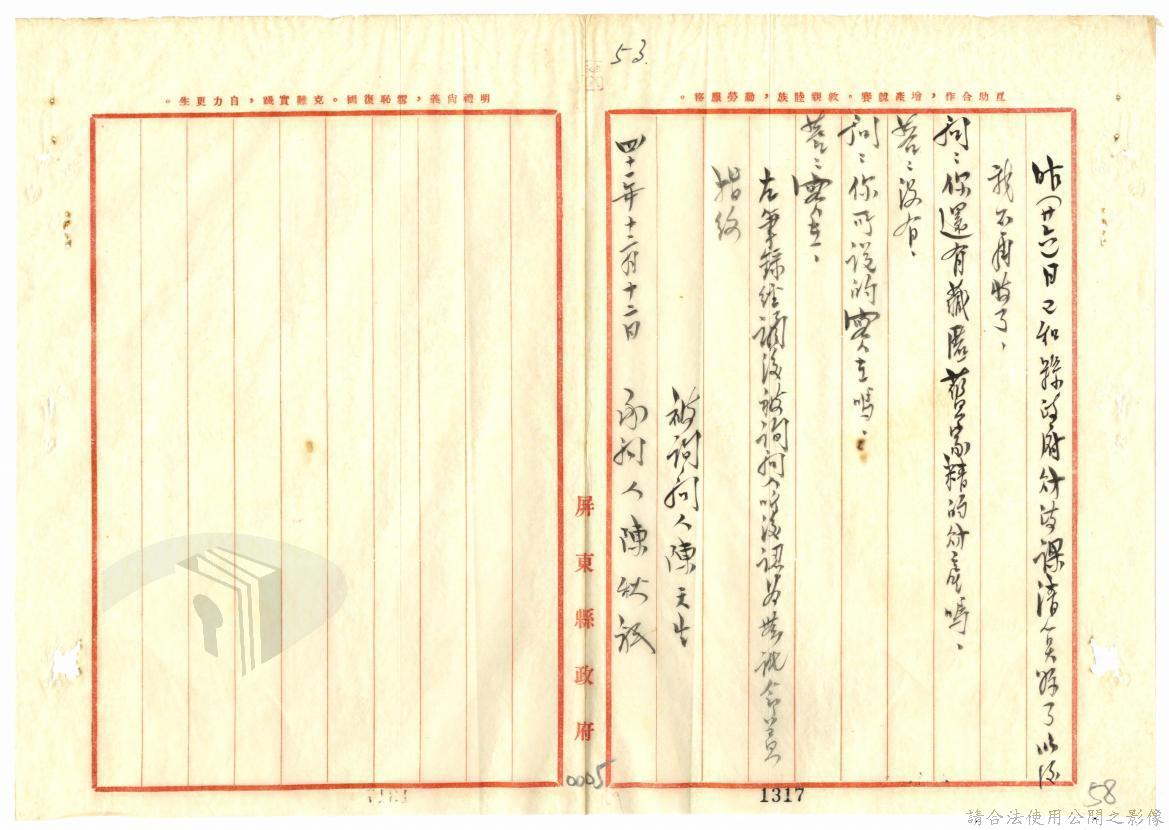 53.
互助合作，增產競賽。敦親睦族，勤勞服務。
昨(廿六)日已和縣政府財政課清算好了以後
我不再時了、
問：你還有藏匿曹家精的財產嗎、
答：沒有、
問：你所說的實在嗎、
答：實在、
右筆錄經誦後被詢問人听後認為無訛令簽
指紋
被詢問人陳天生
四十一年十二月十二日
承詢人陳
屏東縣政府
明禮尚義，雪恥復國。克難實踐，自力更生。
0005
1317
58
請合法使用公開之影像